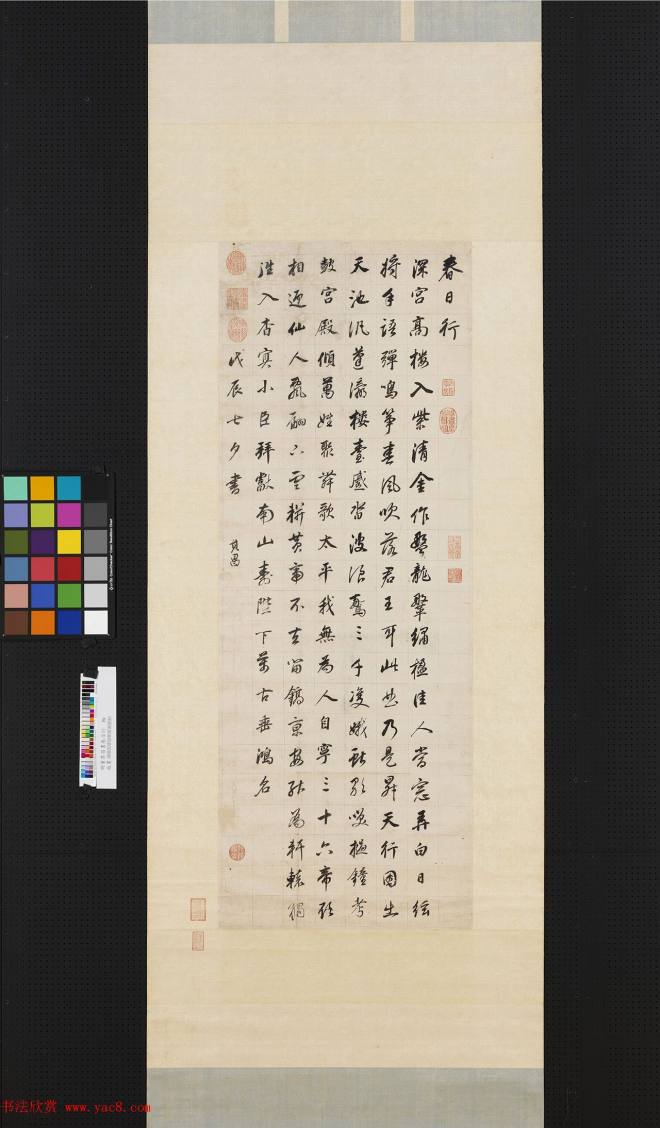 春日行
深宮高樓入紫清金作龍繡楹佳人當窓弄白日絃
將手語彈鳴箏春風吹落君王耳此曲乃是昇天行因出
天池汎蓬瀛樓臺蹙沓波浪驚三千雙蛾獻歌笑撾鐘考
皷宮殿傾萬姓聚舞歌太平我無為人自寧三十六帝欲
相迎仙人飄翩下雲軿黃帝不去留鎬京安能為軒轅獨
往入杳冥小臣拜獻南山壽陛下萬古垂鴻名
戊辰七夕書 其昌
书法欣赏 www.yac8.com